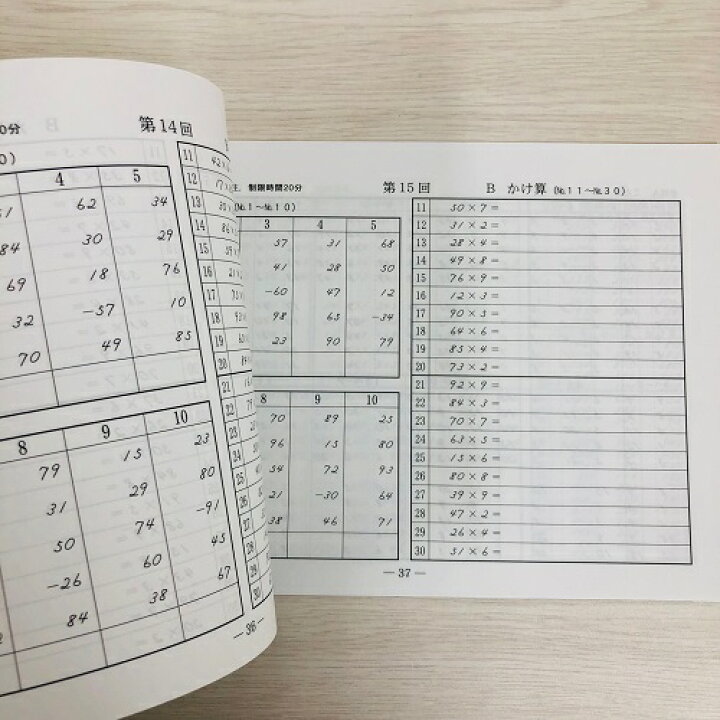 0分 第14回
0)
4 5
51 62 34
84 30 29
69 18 76
32 -57 10
70 49 85
8 9 10
79 15 23
31 29 80
50 74 -91
-26 60 45
84 38 67
11 42×
12 17×
13
14 86×
15 39×
16 21×
17
18
19
20
21
22
23
24
25
26
27
28
29
30
― 36 ―
制限時間20分 第15回 B かけ算 (№11～№30)
(№1～№10)
3 4 5
57 31 68
41 28 50
-60 47 12
98 65 -34
23 90 79
8 9 10
70 89 25
96 15 80
54 72 93
21 -30 64
38 46 71
11 50×7=
12 31×2=
13 28×4=
14 49×8=
15 76×9=
16 12×3=
17 90×5=
18 64×6=
19 85×4=
20 73×2=
21 92×9=
22 84×3=
23 70×7=
24 63×5=
25 15×6=
26 80×8=
27 39×9=
28 47×2=
29 26×4=
30 51×6=
― 37 ―